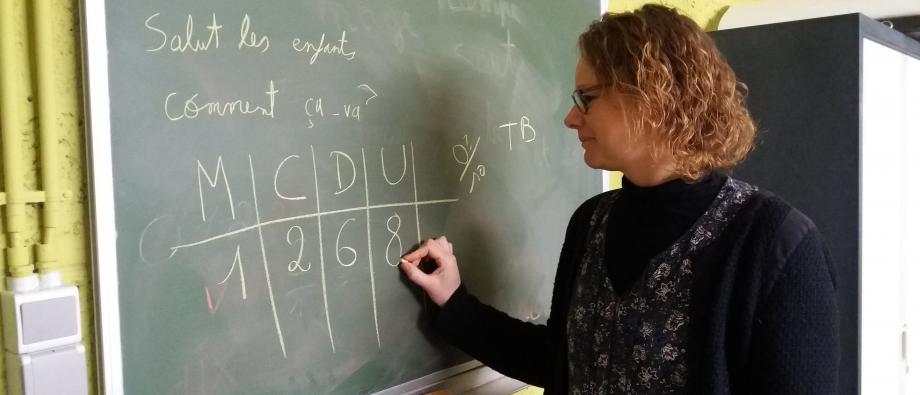 Salut les enfants
comment ça-va?
TB
M C D U
1 2 6 8